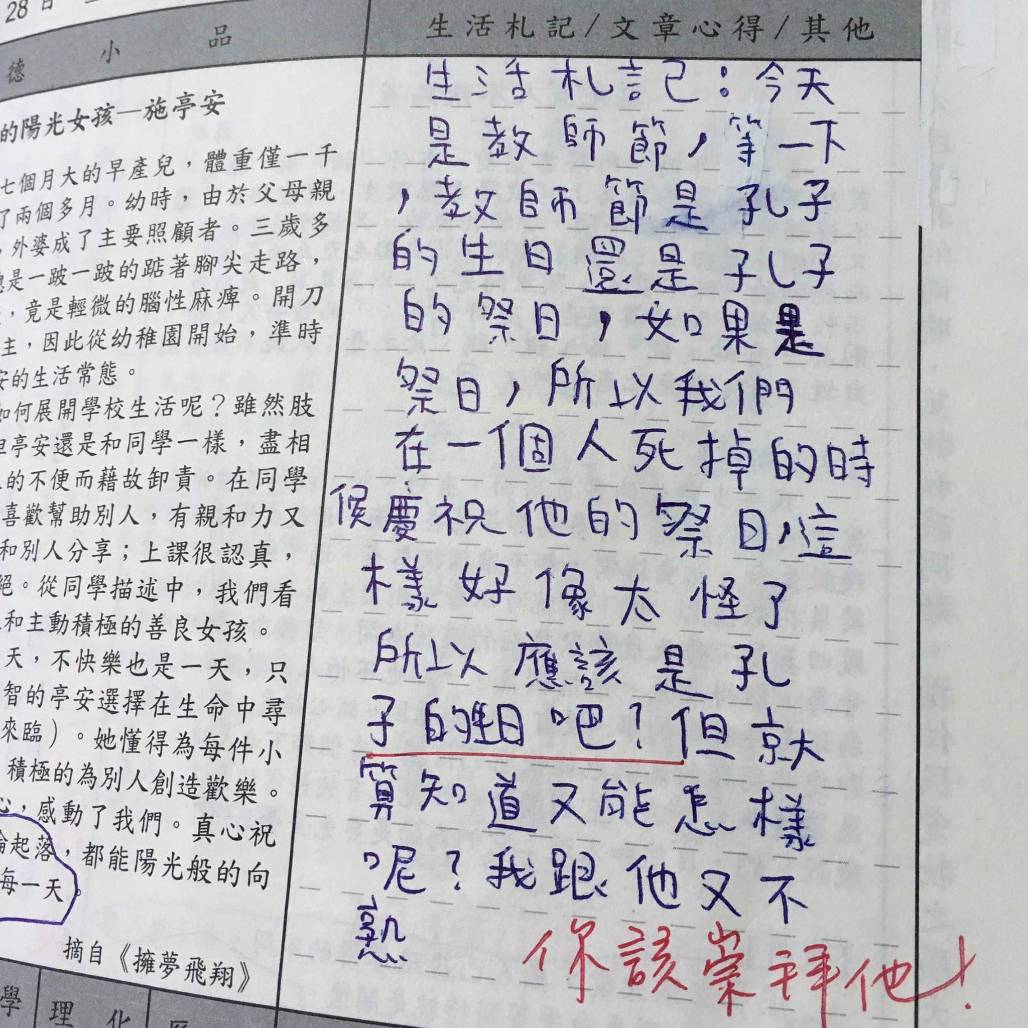 28日
德 小 品
的陽光女孩—施亭安
七個月大的早產兒，體重僅一千
了兩個多月。幼時，由於父母親
，外婆成了主要照顧者。三歲多
總是一跛一跛的踮著腳尖走路，
，竟是輕微的腦性麻痺。開刀
主，因此從幼稚園開始，準時
安的生活常態。
如何展開學校生活呢？雖然肢
但亭安還是和同學一樣，盡相
的不便而藉故卸責。在同學
喜歡幫助別人，有親和力又
和別人分享；上課很認真，
絕。從同學描述中，我們看
和主動積極的善良女孩。
天，不快樂也是一天，只
智的亭安選擇在生命中尋
來臨）。她懂得為每件小
積極的為別人創造歡樂。
心，感動了我們。真心祝
論起落，都能陽光般的向
每一天。
摘自《擁夢飛翔》
學 理 化
生活札記/文章心得/其他
生活札記：今天
是教師節，等一下
，教師節是孔子
的生日還是孔子
的祭日，如果是
祭日，所以我們
在一個人死掉的時
候慶祝他的祭日，這
樣好像太怪了
所以應該是孔
子的生日吧？但就
算知道又能怎樣
呢？我跟他又不
熟
你該崇拜他！